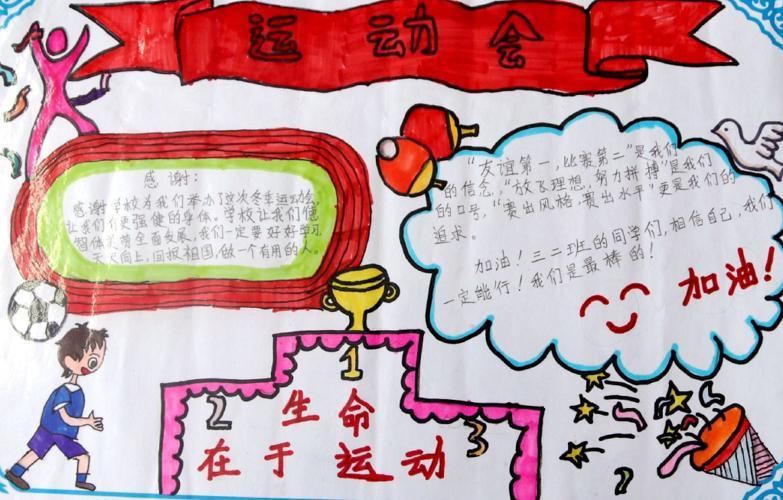 运动会
感谢：
感谢学校为我们举办了这次冬季运动会，
让我们有更强健的身体。学校让我们德
智体美劳全面发展，我们一定要好好学习，
天天向上，回报祖国，做一个有用的人。
"友谊第一，比赛第二"是我们
的信念，"放飞理想，努力拼搏"是我们
的口号，"赛出风格，赛出水平"更是我们的
追求。
加油！三二班的同学们，相信自己，我们
一定能行！我们是最棒的！
加油！
1
2
3
生命
在于运动